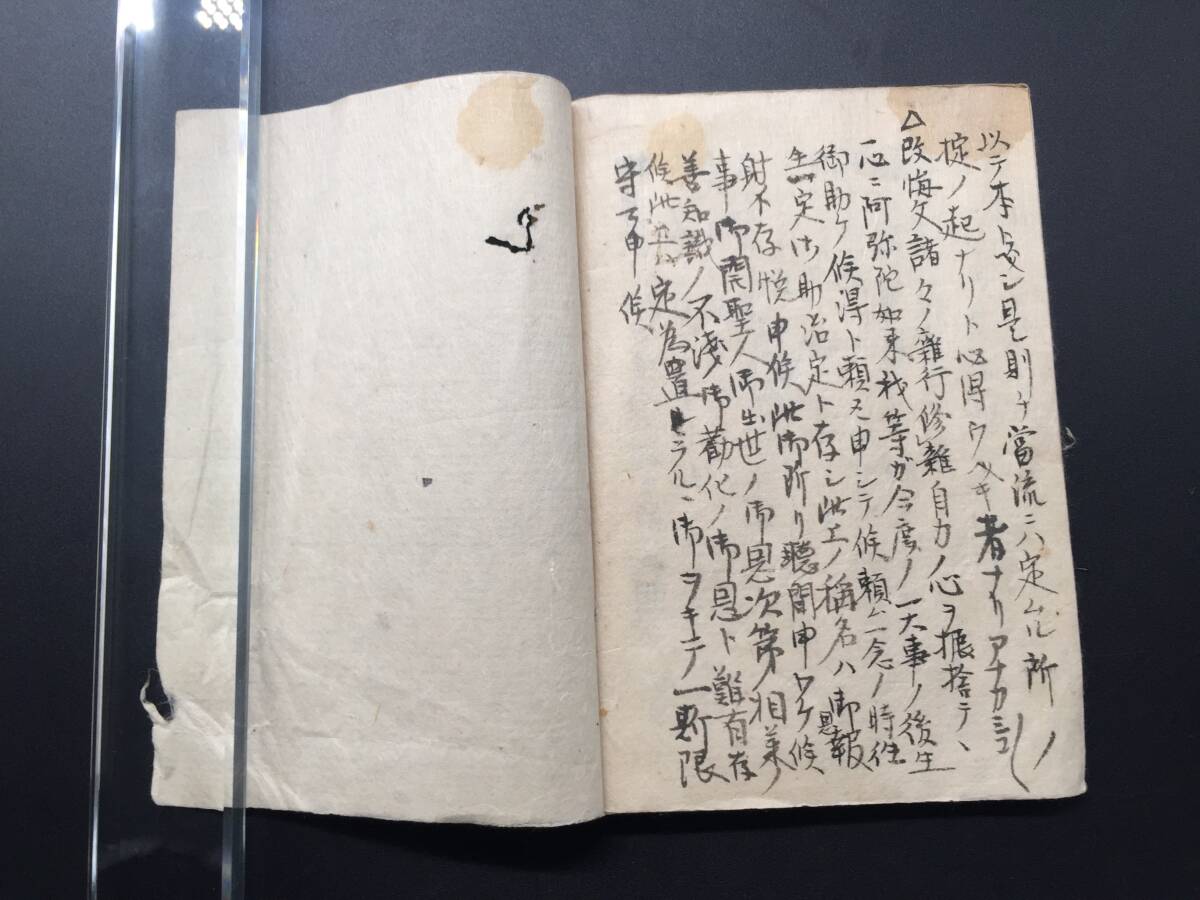 以テ本ト爲シ是則チ當流ニハ定ムル所ノ
掟ノ起ナリト心得ウヘキ者ナリアナカシコ
△改悔文諸々ノ雜行修雜自力ノ心ヲ振捨テヽ
一心ニ阿弥陀如来我等ガ今度ノ一大事ノ後生
御助ケ候得ト頼ミ申シテ候頼ム一念ノ時往
生一定御助治定ト存シ此上ノ稱名ハ御恩報
射ト存悦申候此御所リ聽聞申ワケ候
事御開聖人御出世ノ御恩次第相承ノ
善知識ノ不淺御勸化ノ御恩ト難有存
候此上定為置セラルヽ御ヲキテ一期限
守可申候